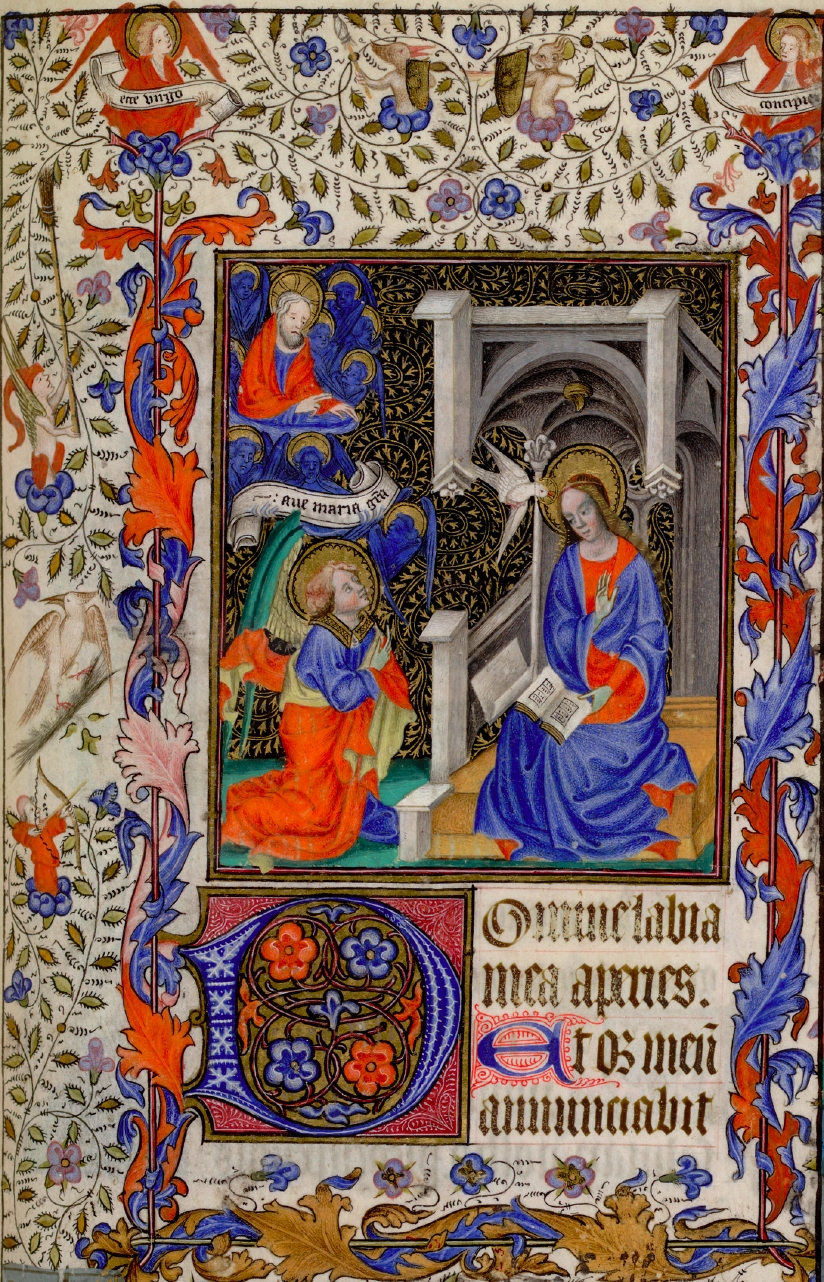 ecce virgo
concipie
aue maria gra
Domine labia
mea aperies.
Et os meū
annunciabit